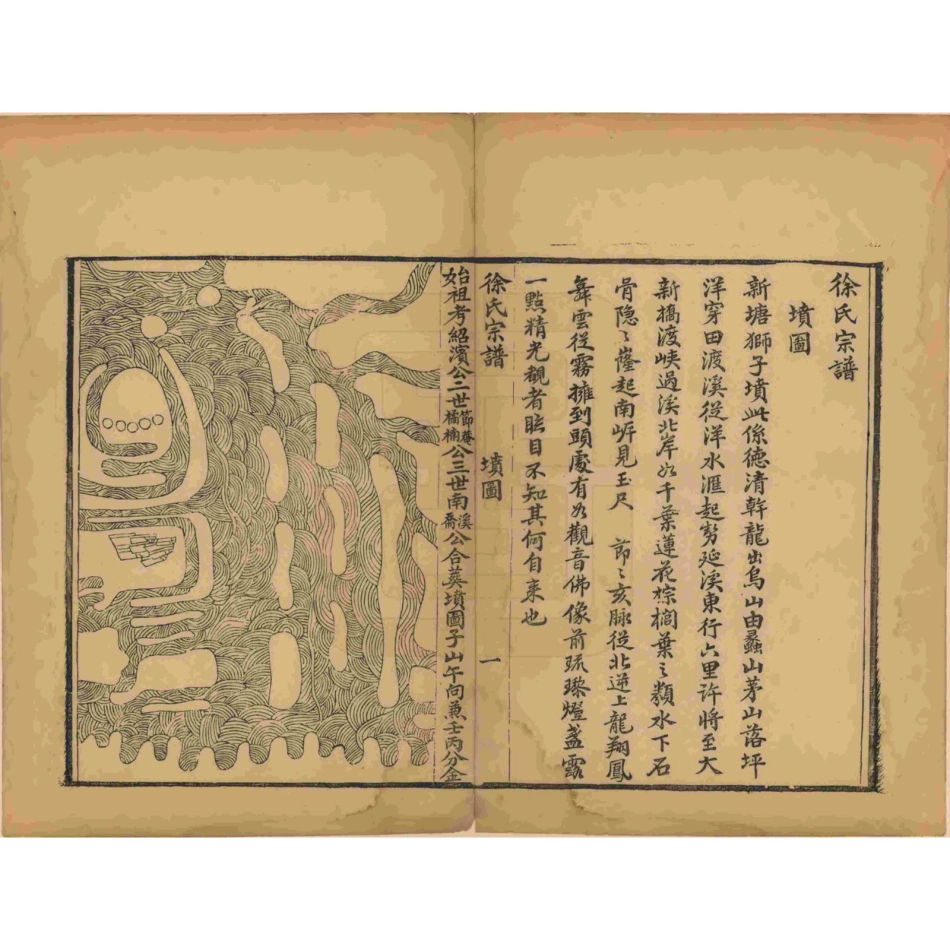 徐氏宗譜
墳圖
新塘獅子墳此係德清幹龍出烏山由蠡山茅山落坪
洋穿田渡溪從洋水滙起勢延溪東行六里許將至大
新橋渡峽過溪北岸如千葉蓮花棕櫚葉之類水下石
骨隐〻窿起南㟁見玉尺 節〻亥脉從北逆上龍翔鳳
舞雲從霧擁到頭處有如觀音佛像前琉璨燈盞露
一點精光観者眩目不知其何自来也
徐氏宗譜 墳圖 一
始祖考紹濱公二世節菴橘楠公三世南溪喬公合葬墳圖子山午向兼壬丙分金